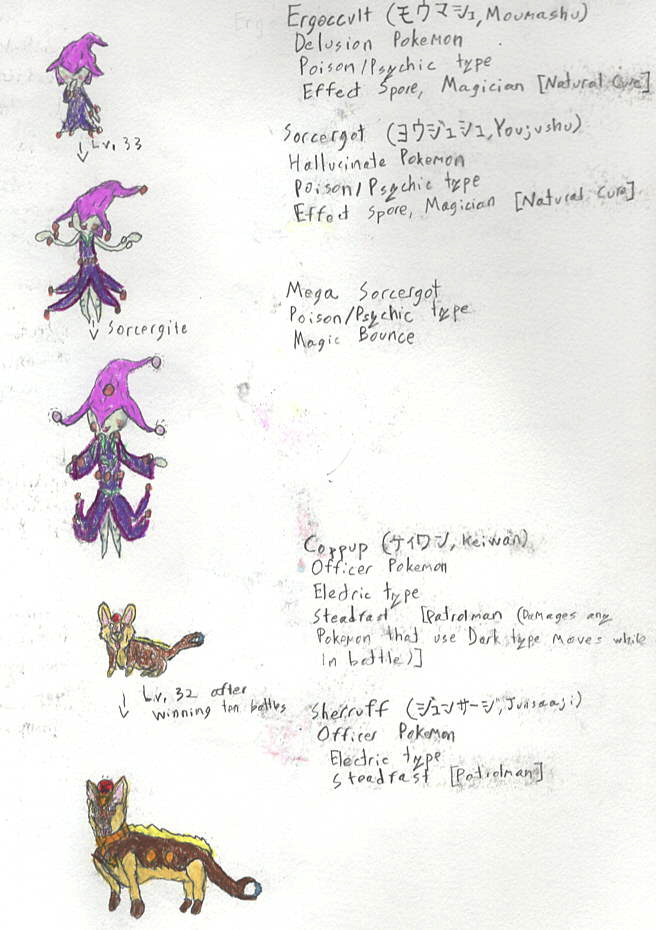 Ergoccult (モウマシュ, Moumashu)
Delusion Pokemon
Poison/Psychic type
Effect Spore, Magician [Natural Cure]
Lv. 33
Sorcergot (ヨウジュシュ, Youjushu)
Hallucinate Pokemon
Poison/Psychic type
Effect Spore, Magician [Natural Cure]
Sorcergite
Mega Sorcergot
Poison/Psychic type
Magic Bounce
Coppup (ケイワン, Keiwan)
Officer Pokemon
Electric type
Steadfast [Patrolman (Damages any
Pokemon that use Dark type moves while
in battle)]
Lv. 32 after
winning ten battles
Sherruff (ジュンサージ, Junsaaji)
Officer Pokemon
Electric type
Steadfast [Patrolman]